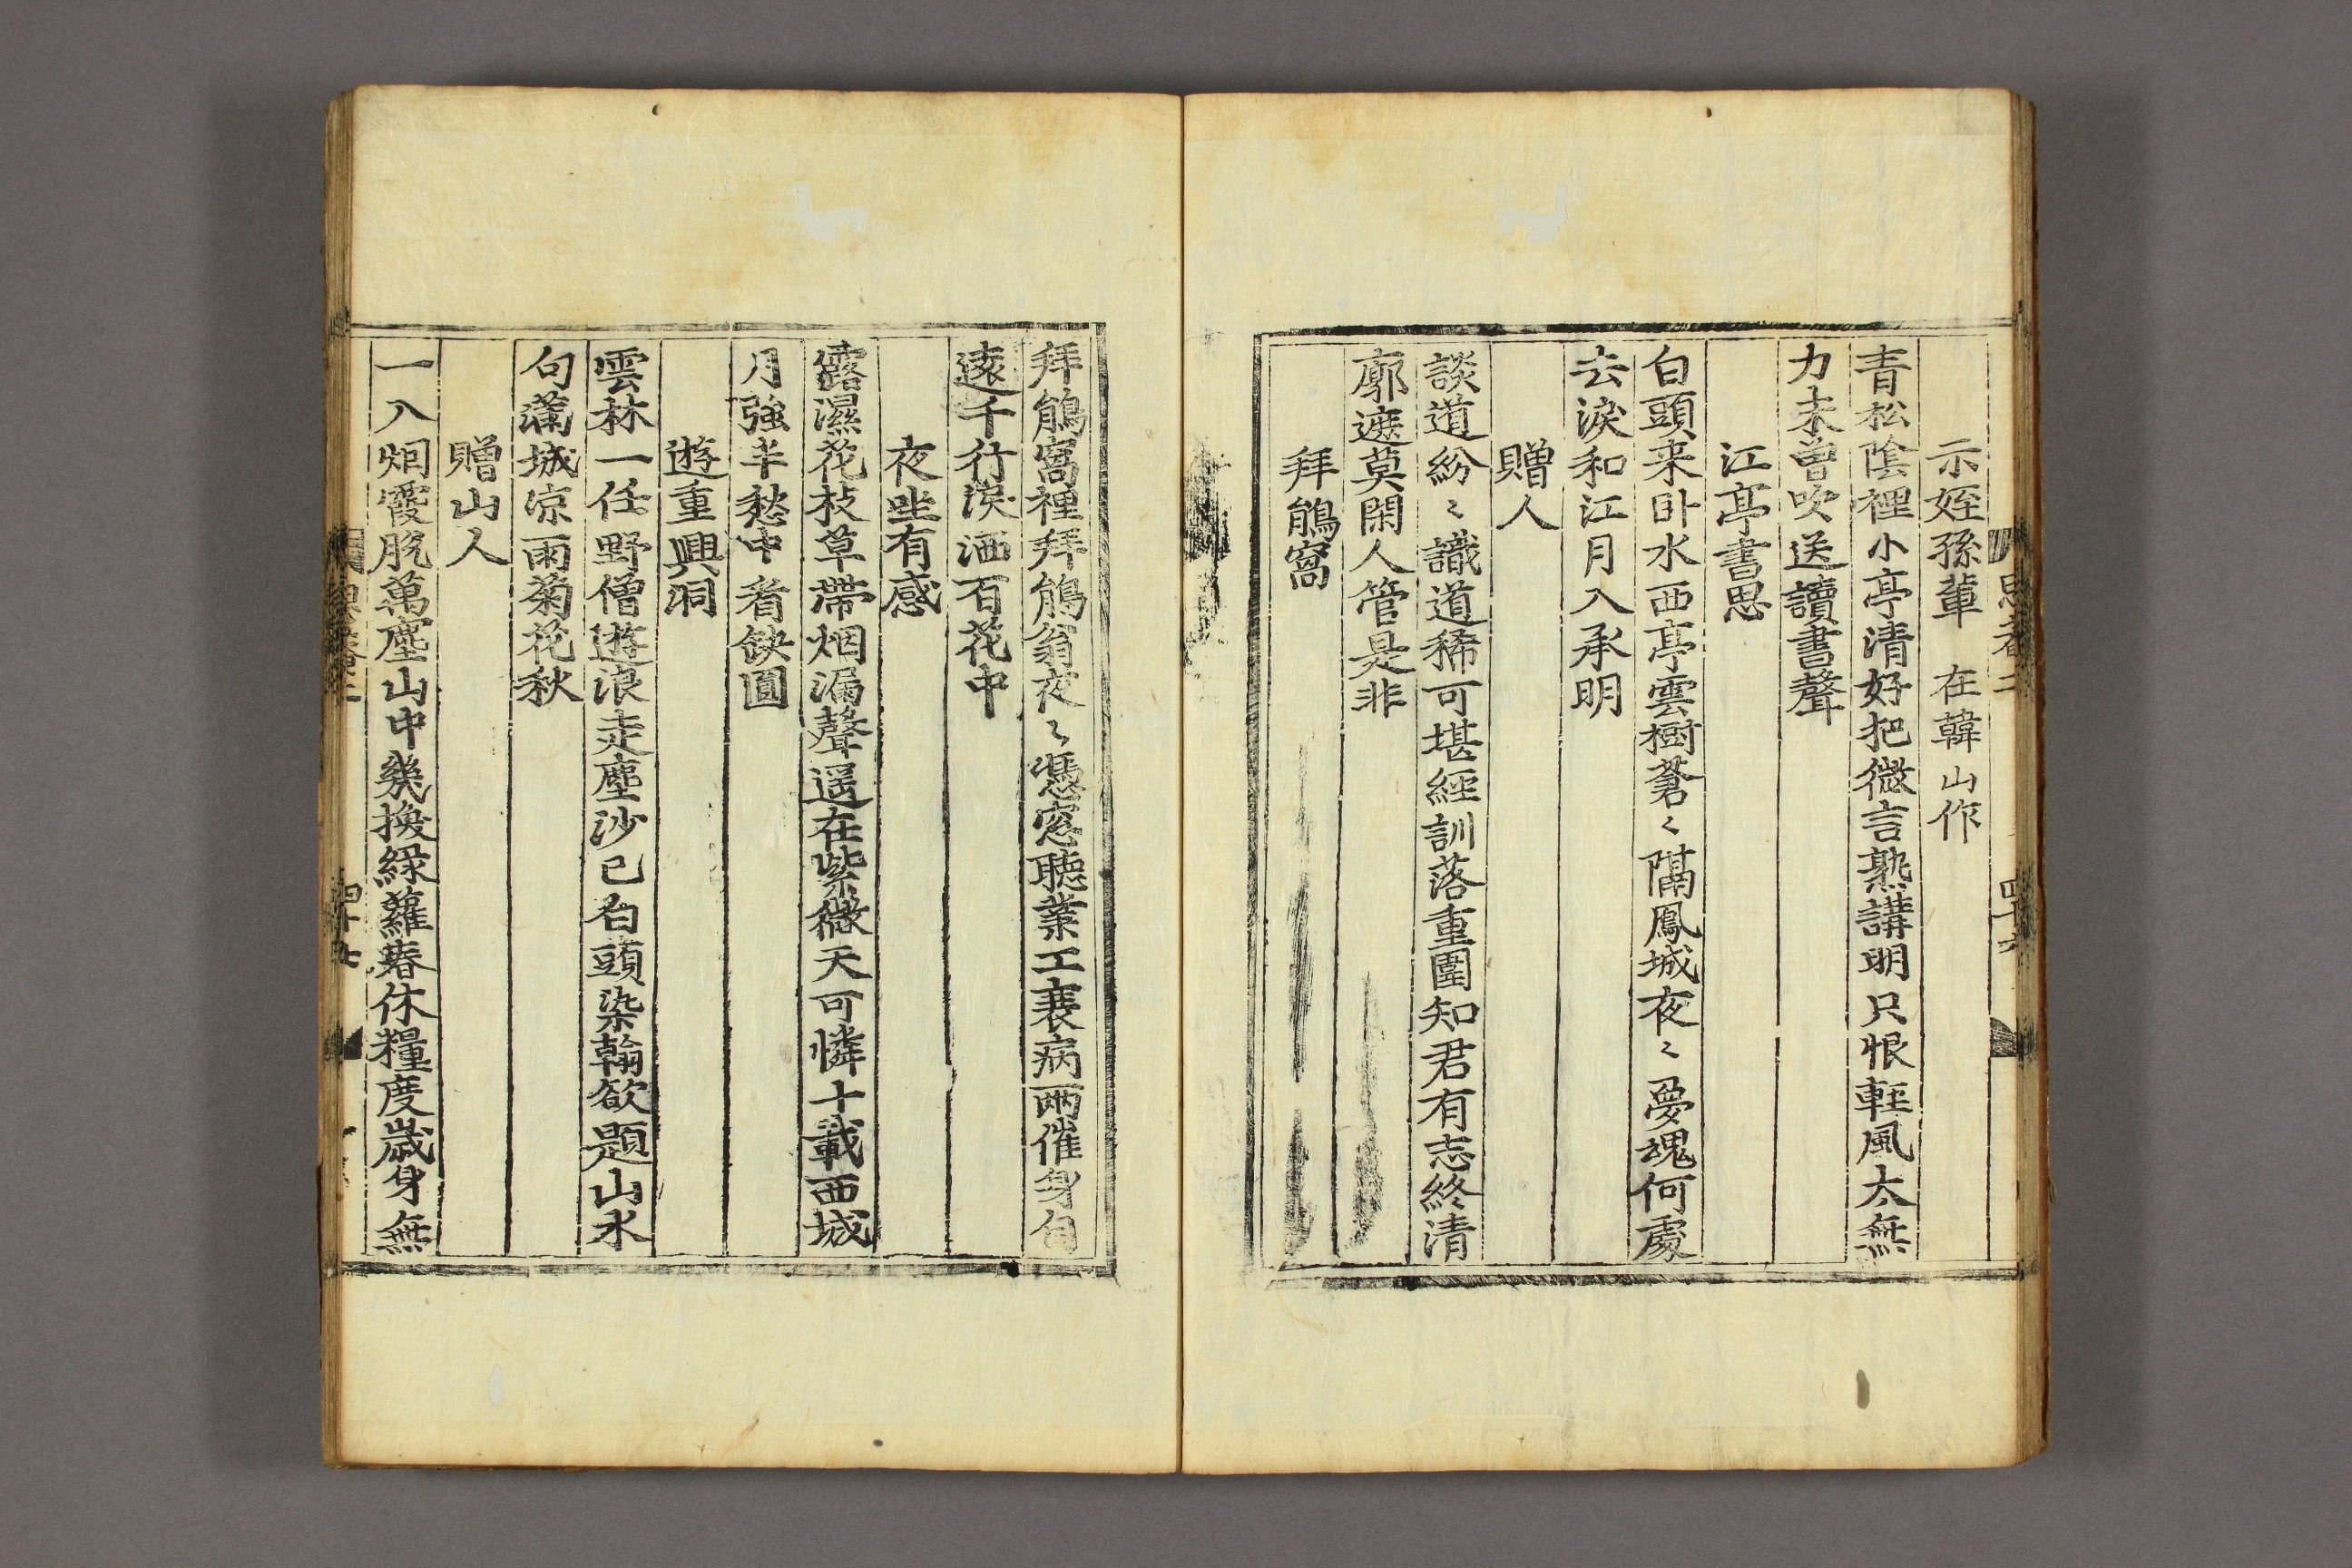 示姪孫輩 在韓山作
青松陰裡小亭清好把微言熟講明只恨軽風太無
力未曽吹送讀書聲
江亭書思
白頭来卧水西亭雲樹蒼〻隔鳳城夜〻夢魂何處
去淚和江月入承明
贈人
談道紛〻識道稀可堪經訓落重圍知君有志終清
廓遮莫閑人管是非
拜鵑窩
拜鵑窩裡拜鵑翁夜〻憑窓聽葉工衰病兩催身自
遠千行淚洒石花中
夜坐有感
露濕花枝草帶烟漏聲遥在紫微天可憐十載西城
月強半愁中看缺圓
遊重興洞
雲林一任野僧遊浪走塵沙已白頭染翰欲題山水
句滿城凉雨菊花秋
贈山人
一入烟霞脫萬塵山中幾換綠蘿春休糧度歲身無
四十七